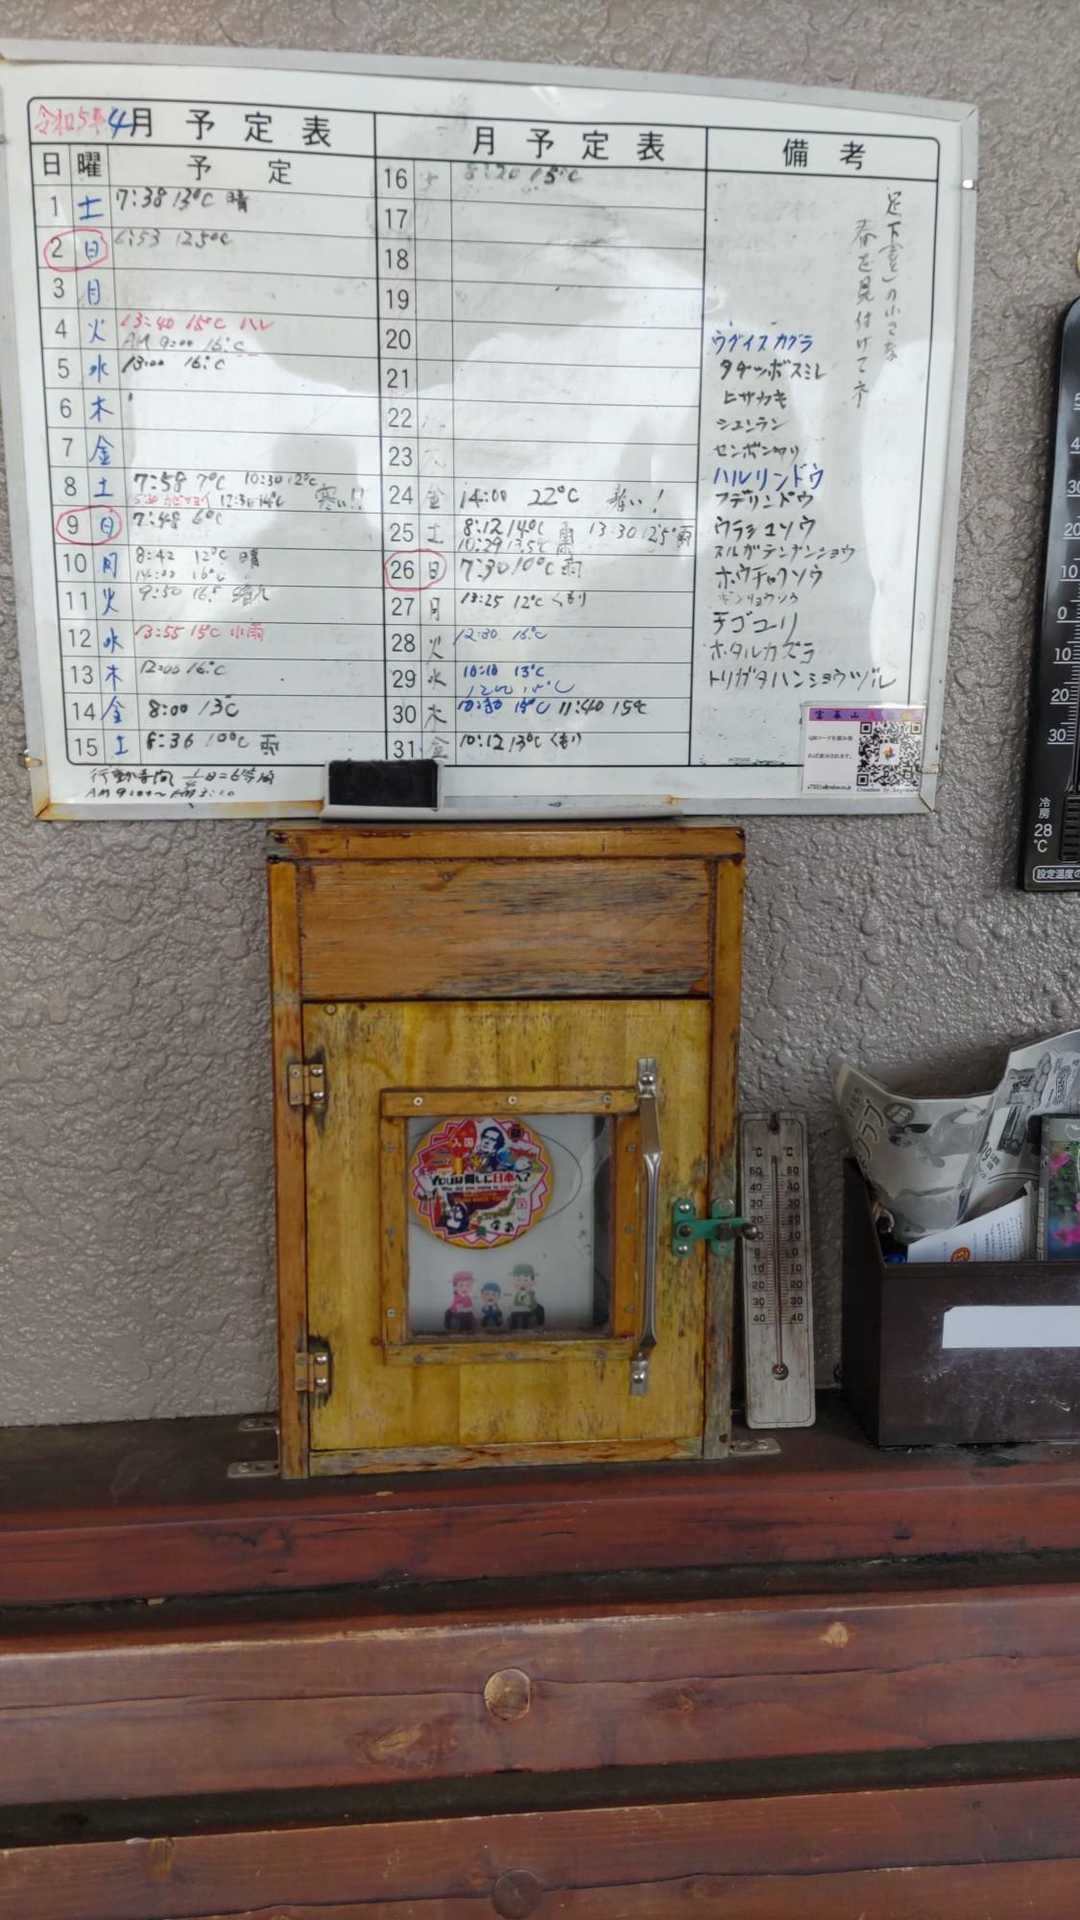 令和5年 4月 予定表
日 曜 予定
1 土 7:38 13°C 晴
2 日 6:53 12.5°C
3 月
4 火 13:40 15°C ハレ
AM 9:00 16°C
5 水 13:00 16°C
6 木
7 金
8 土 7:58 7°C 10:30 12°C
12:30 14°C 寒い!!
9 日 7:48 6°C
10 月 8:42 12°C 晴
14:00 16°C
11 火 9:50 16.5 晴れ
12 水 13:55 15°C 小雨
13 木 12:00 16°C
14 金 8:00 13°C
15 土 8:36 10°C 雨
AM 9:00〜
月 予定表
16 土 8:20 15°C
17
18
19
20
21
22
23
24 金 14:00 22°C 暑い!
25 土 8:12 14°C 雨 13:30 12.5° 雨
10:29 13.5°C 雨
26 日 7:30 10°C 雨
27 月 13:25 12°C くもり
28 火 12:30 16°C
29 水 10:10 13°C
30 木 10:30 15°C 11:40 15°C
31 金 10:12 13°C くもり
備考
の小さな
春を見付けてネ
ウグイスカグラ
タチツボスミレ
ヒサカキ
シュンラン
センボンヤリ
ハルリンドウ
フデリンドウ
ウラシマソウ
スルガテンナンショウ
ホウチャクソウ
ギンリョウソウ
チゴユリ
ホタルカズラ
トリガタハンショウヅル
冷房
28
°C
設定温度の
入国
YOUは何しに日本へ?
°C °C
50 50
40 40
30 30
20 20
10 10
0 0
10 10
20 20
30 30
40 40